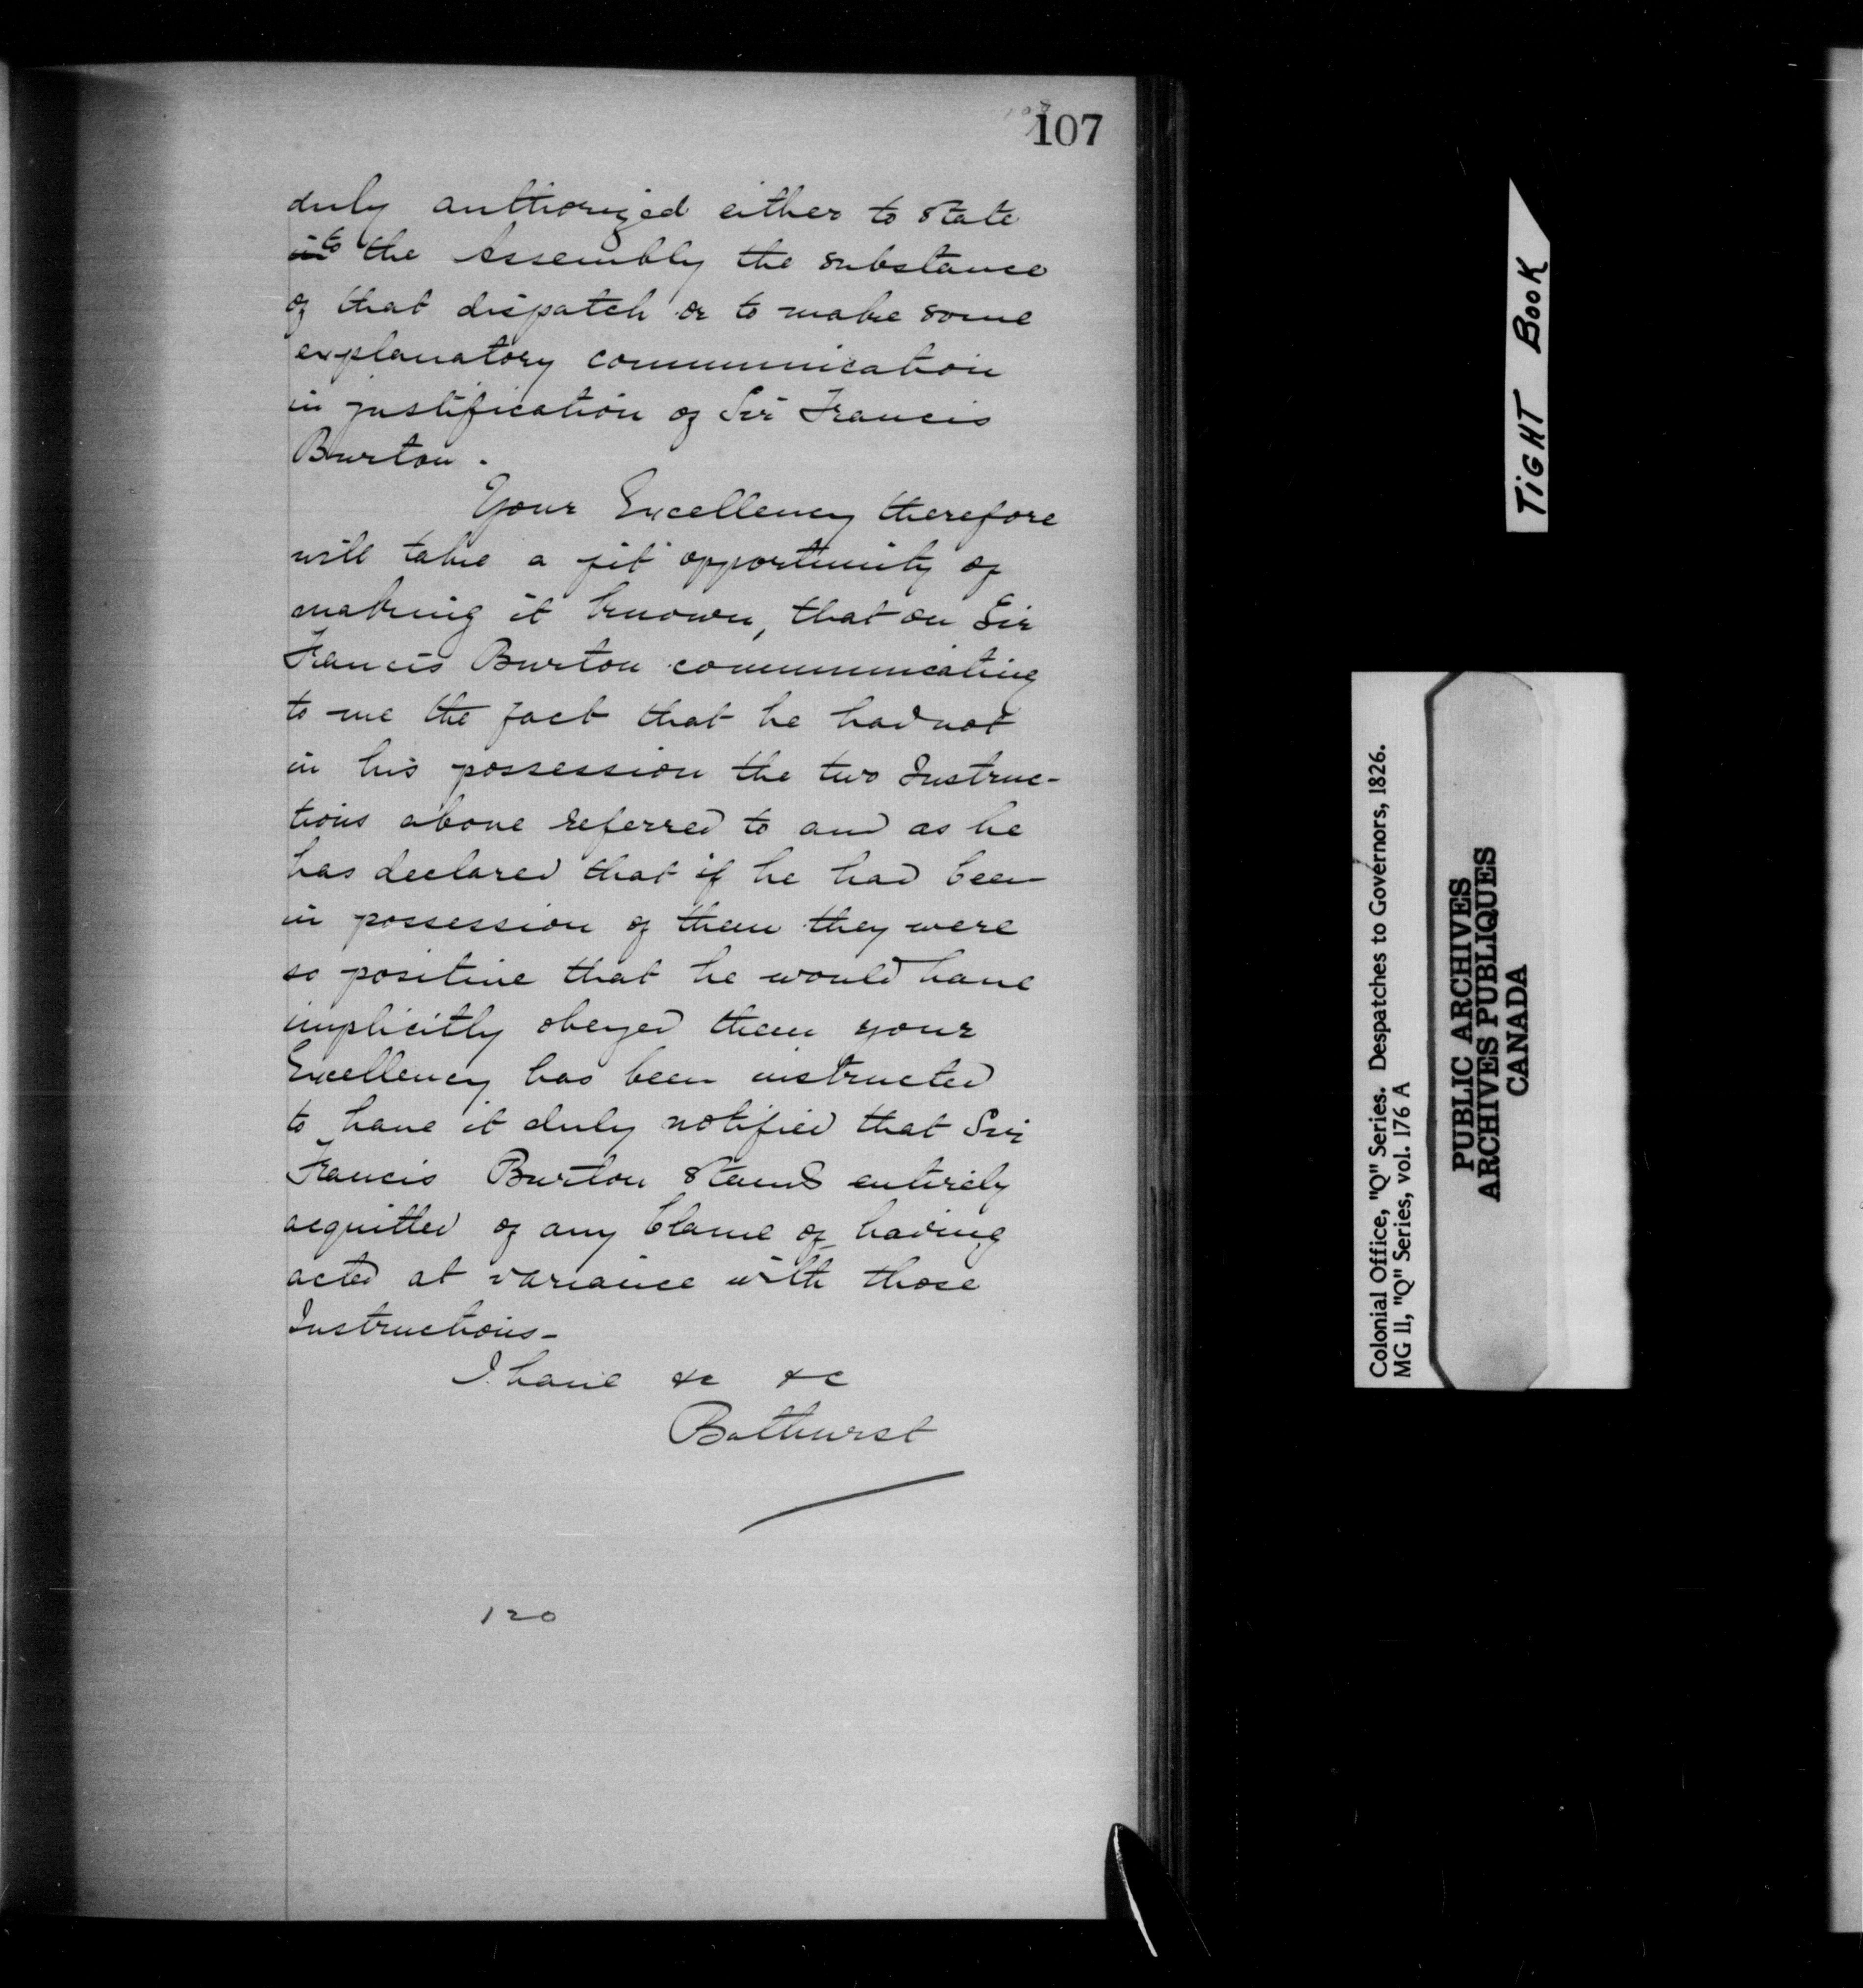 107
duly authorized either to state
to the Assembly the substance
of that dispatch or to make some
explanatory communication
in justification of Sir Francis
Burton.
Your Excellency therefore
will take a fit opportunity of
making it known, that on Sir
Francis Burton communicating
to me the fact that he had not
in his possession the two Instruc-
tions above referred to and as he
has declared that if he had been
in possession of them they were
so positive that he would have
implicitly obeyed them your
Excellency has been instructed
to have it duly notified that Sir
Francis Burton stands entirely
acquitted of any blame of having
acted at variance with those
Instructions-
I have &c &c
Bathurst
120
TIGHT BOOK
Colonial Office, "Q" Series. Despatches to Governors, 1826.
MG 11, "Q" Series, vol. 176 A
PUBLIC ARCHIVES
ARCHIVES PUBLIQUES
CANADA